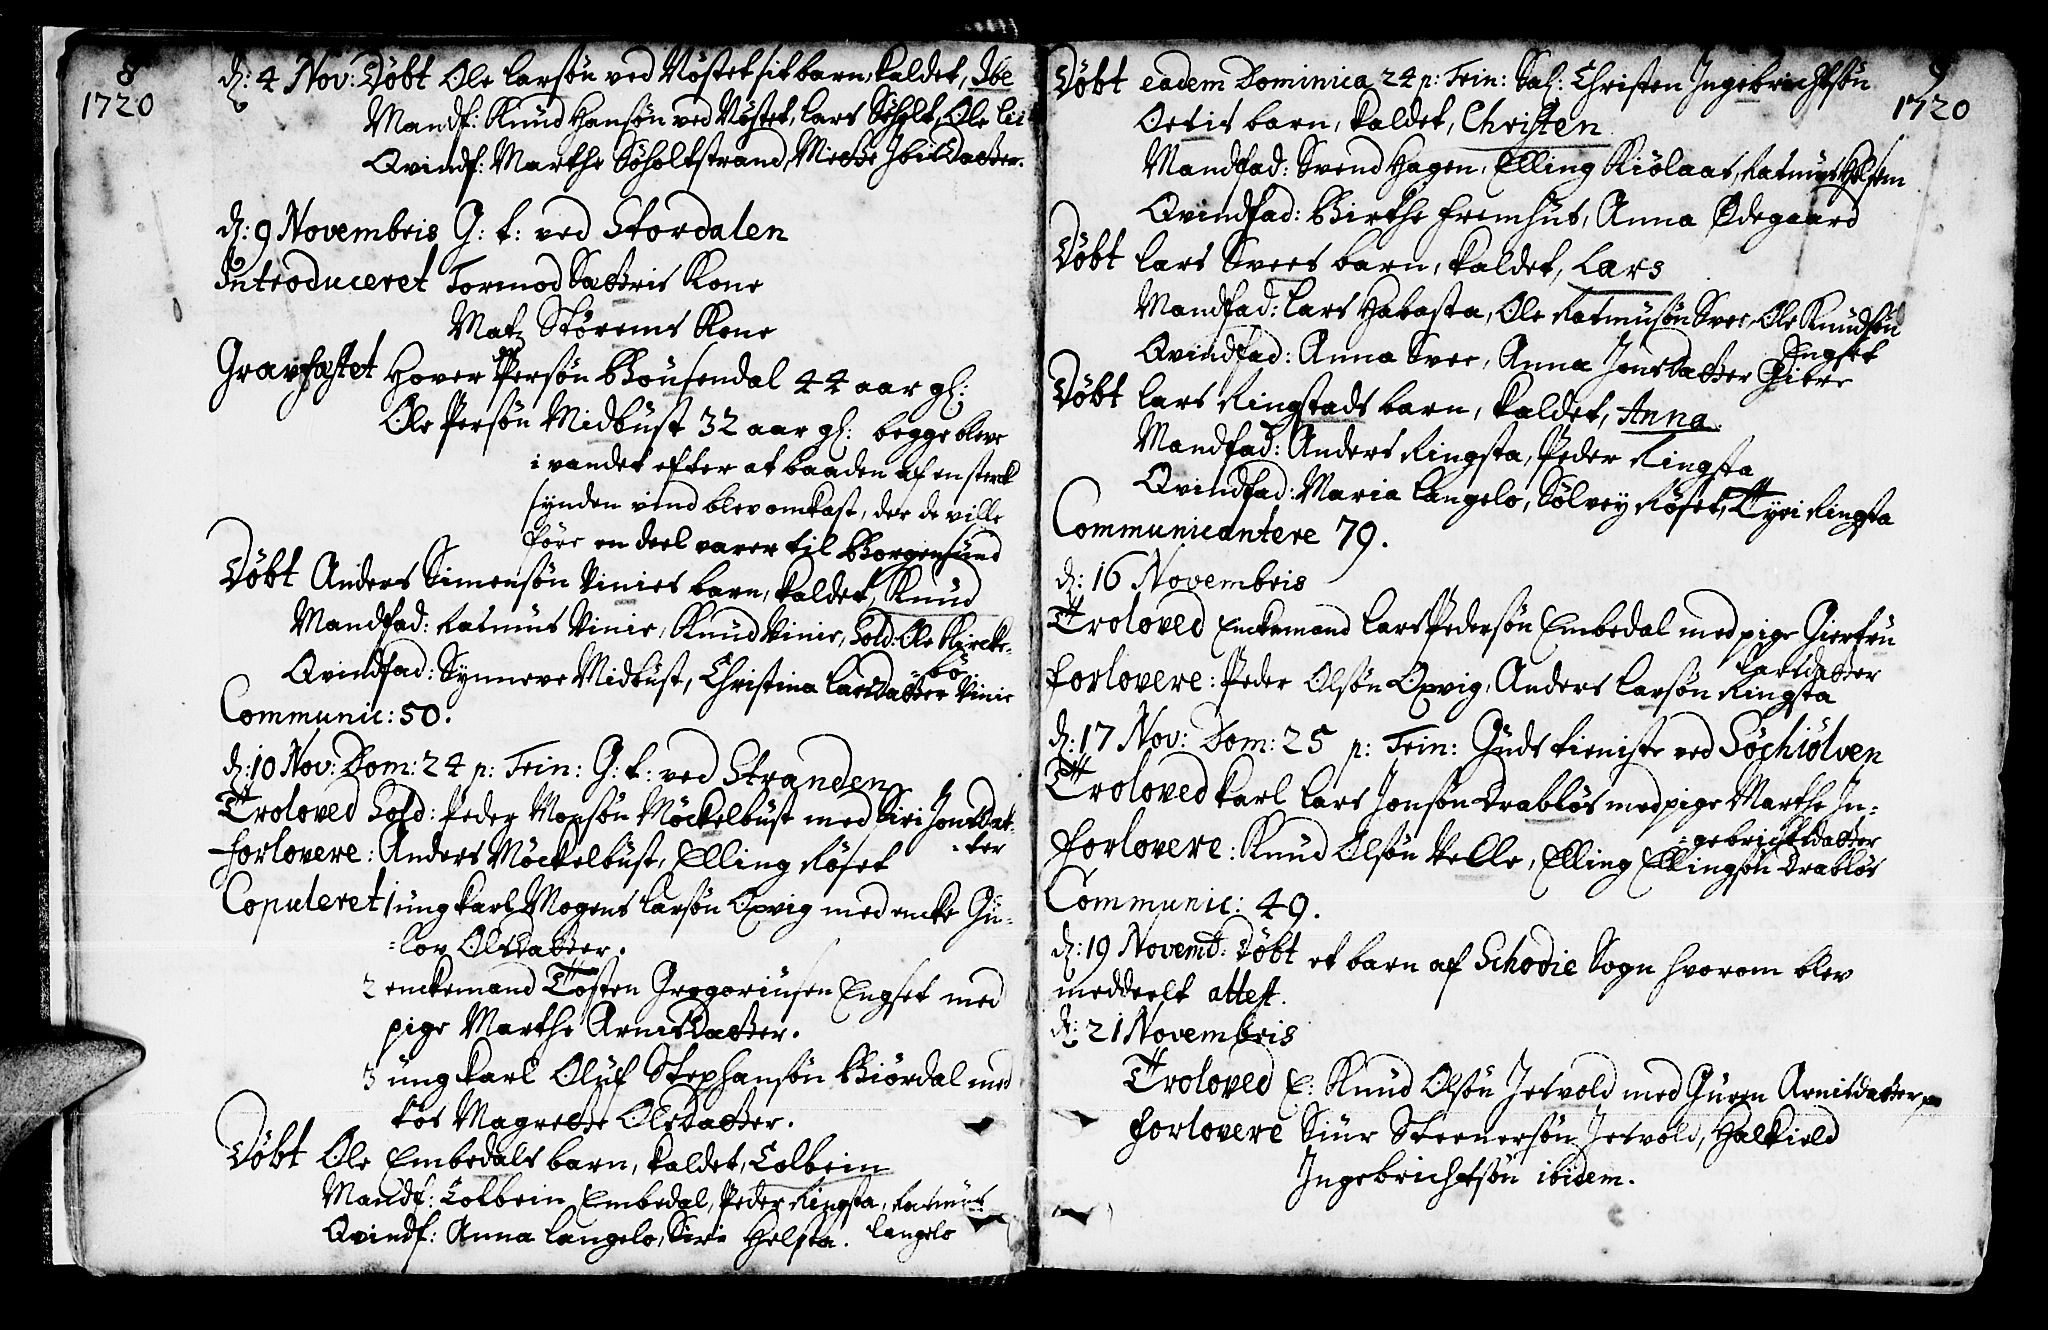 8
1720
d: 4 Nov: Döbt Ole Larsön ved Nöstet sit barn, kaldet, Ibe
Mandf: Knud Hansön ved Nöstet, Lars Söholt, Ole Lii
Qvindf: Marthe Söholtstrand, Mette Ibisdatter.
d: 9 Novembris G: t: ved Stordalen
Introduceret Tormod Sætris Kone
Matz Störems Kone
Gravfæstet Hover Persön Bousendal 44 aar gl:
Ole Persön Midbust 32 aar gl: begge bleve
i vandet efter at baaden af en sterck
synden vind blev omkast, der de ville
före en deel varer til Borgensund
Döbt Anders Simensön Vinies barn, kaldet, Knud
Mandfad: Rasmus Vinie, Knud Vinie, Sold: Ole Kircke-
bö
Qvindfad: Synneve Midbust, Christina Larsdatter Vinie
Communic: 50.
d: 10 Nov: Dom: 24 p: Trin: G: t: ved Stranden
Troloved Sold: Peder Monsön Möckelbust med Siri Jonsdat-
-ter
forlovere: Anders Möckelbust, Elling Röset
Copuleret 1 ung karl Mogens Larsön Opvig med encke Gu-
-lov Olsdatter.
2 enckemand Tosten Gregoriusen Engset med
pige Marthe Arnesdatter.
3 ung karl Oluf Stephansön Biördal med
tös Magrette Olsdatter.
Döbt Ole Embedals barn, kaldet, Colbein
Mandf: Colbein Embedal, Peder Ringsta, Rasmus
Langelo
Qvindf: Anna Langelo, Siri Helsta.
9
1720
Döbt eadem Dominica 24 p: Trin: Sal: Christen Ingebrichtsön
Ortis barn, kaldet, Christen
Mandfad: Svend Hagen, Elling Kiölaas, Rasmus Holsten
Qvindfad: Birthe Fremhus, Anna Ödegaard
Döbt Lars Svees barn, kaldet, Lars
Mandfad: Lars Habasta, Ole Rasmusön Svee, Ole Knudsön
Engset
Qvindfad: Anna Svee, Anna Jonsdatter Giere
Döbt Lars Ringstads barn, kaldet, Anna.
Mandfad: Anders Ringsta, Peder Ringsta
Qvindfad: Maria Langelo, Sölvey Röset, Tyri Ringsta
Communicantere 79.
d: 16 Novembris
Troloved Enckemand Lars Pedersön Embedal med pige Giertru
Larsdatter
forlovere: Peder Olsön Opvig, Anders Larsön Ringsta
d: 17 Nov: Dom: 25 p: Trin: Guds tieniste ved Söchiölven
Troloved karl Lars Jonsön Drablös med pige Marthe In-
-gebrichtsdatter
forlovere: Knud Olsön Velle, Elling Ellingsön Drablös
Communic: 49.
d: 19 Novemb: Döbt et barn af Schodie Sogn hvorom blev
meddeelt attest.
d: 21 Novembris
Troloved E: Knud Olsön Jesvold med Guren Arnisdatter
forlovere Siur Steenersön Jesvold, Halkield
Ingebrichtsön ibidem.